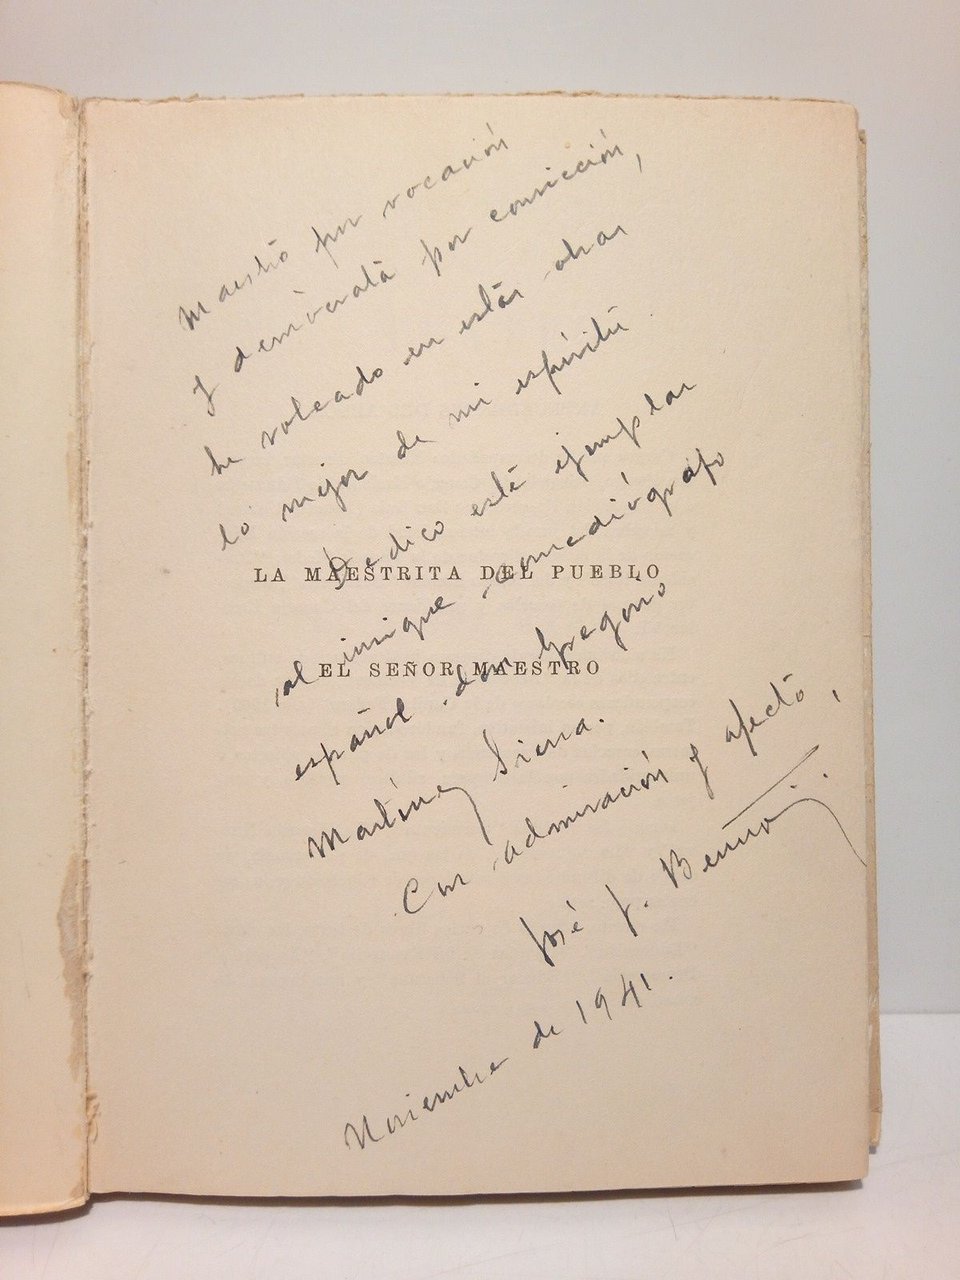 Maestro por vocación
y demócrata por convicción,
he volcado en estas obras
lo mejor de mi espíritu.
Dedico este ejemplar
al insigne comediógrafo
español don Gregorio
Martínez Sierra.
Con admiración y afecto,
José J. Berrutti.
Noviembre de 1941.
LA MAESTRITA DEL PUEBLO
EL SEÑOR MAESTRO